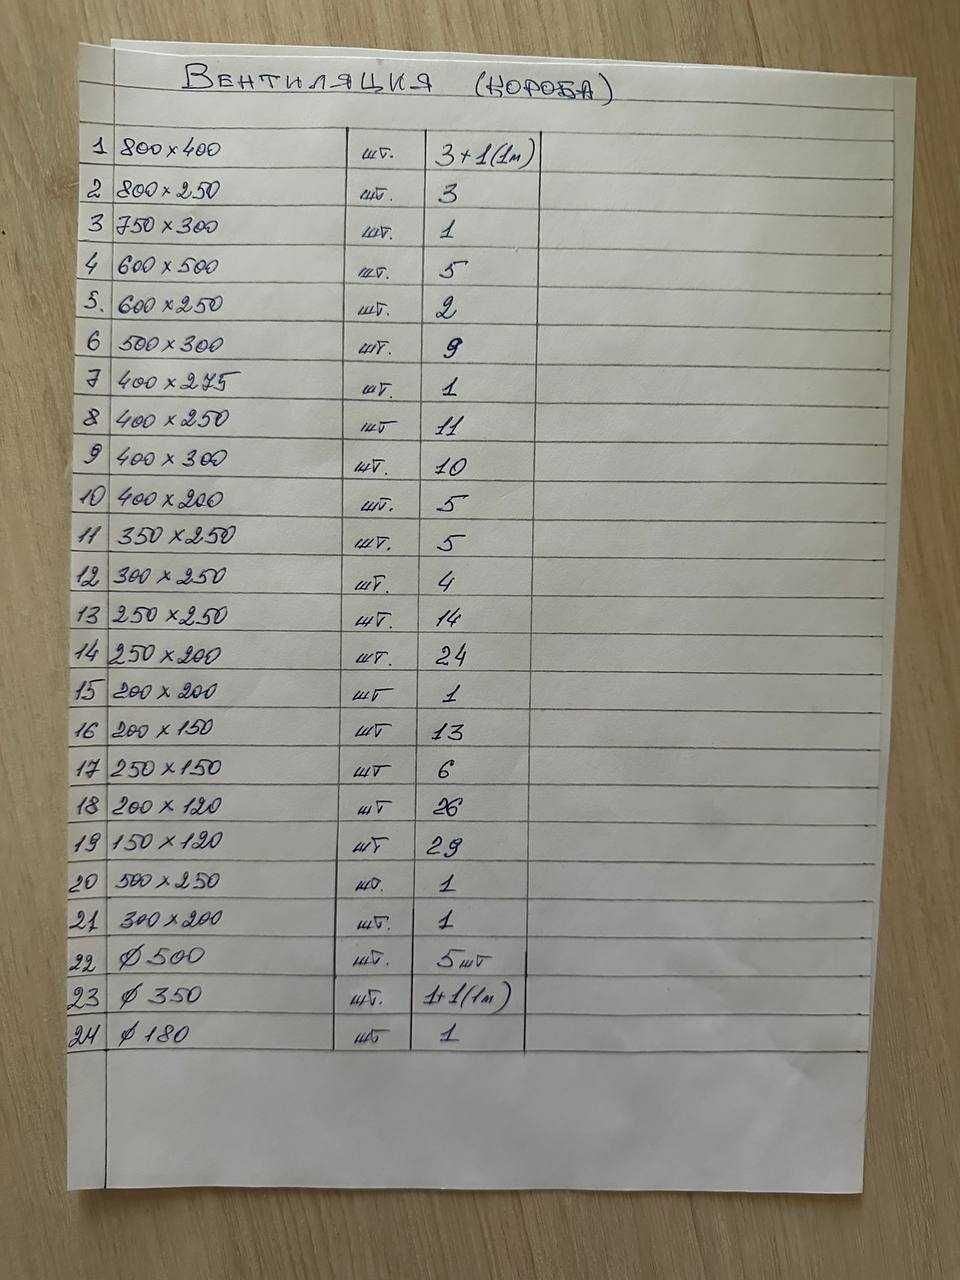 ВЕНТИЛЯЦИЯ (КОРОБА)
1 800×400 шт. 3+1(1м)
2 800×250 шт. 3
3 750×300 шт. 1
4 600×500 шт. 5
5. 600×250 шт. 2
6 500×300 шт. 9
7 400×275 шт. 1
8 400×250 шт 11
9 400×300 шт. 10
10 400×200 шт. 5
11 350×250 шт. 5
12 300×250 шт. 4
13 250×250 шт. 14
14 250×200 шт. 24
15 200×200 шт 1
16 200×150 шт 13
17 250×150 шт 6
18 200×120 шт 26
19 150×120 шт 29
20 500×250 шт. 1
21 300×200 шт. 1
22 ∅500 шт. 5шт
23 ∅350 шт. 1+1(1м)
24 ∅180 шт 1